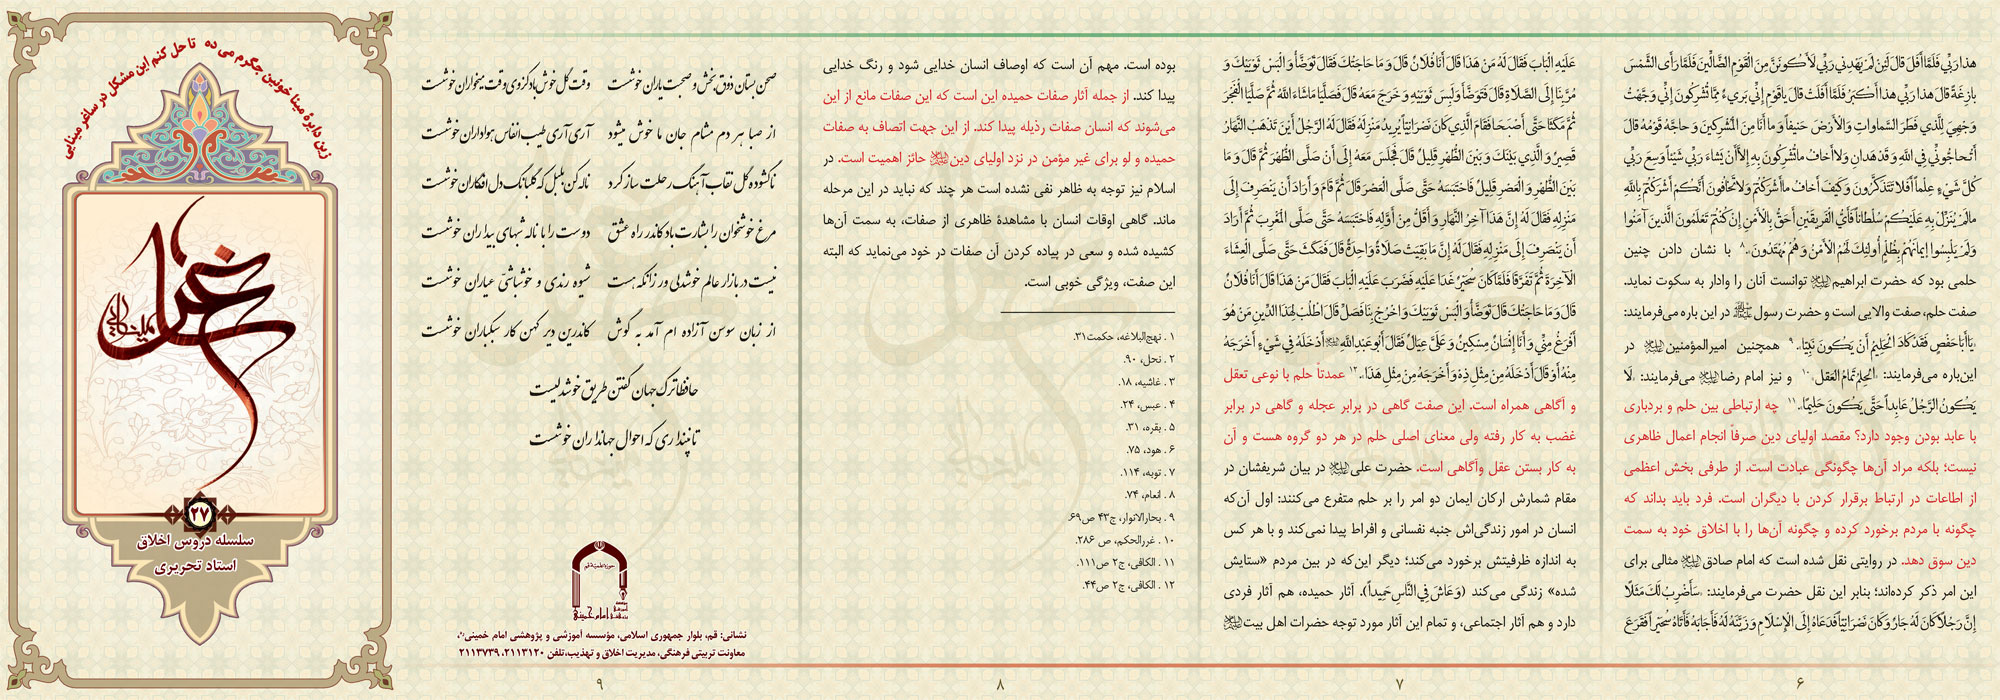 هذا رَبِّي فَلَمَّا أَفَلَ قالَ لَئِنْ لَمْ يَهْدِنِي رَبِّي لَأَكُونَنَّ مِنَ الْقَوْمِ الضَّالِّينَ فَلَمَّا رَأَى الشَّمْسَ
بازِغَةً قالَ هذا رَبِّي هذا أَكْبَرُ فَلَمَّا أَفَلَتْ قالَ يا قَوْمِ إِنِّي بَرِي‏ءٌ مِمَّا تُشْرِكُونَ إِنِّي وَجَّهْتُ
وَجْهِيَ لِلَّذِي فَطَرَ السَّماواتِ وَالْأَرْضَ حَنِيفاً وَ ما أَنَا مِنَ الْمُشْرِكِينَ وَ حاجَّهُ قَوْمُهُ قالَ
أَتُحاجُّونِّي فِي اللَّهِ وَ قَدْ هَدانِ وَ لا أَخافُ ما تُشْرِكُونَ بِهِ إِلاَّ أَنْ يَشاءَ رَبِّي شَيْئاً وَسِعَ رَبِّي
كُلَّ شَيْ‏ءٍ عِلْماً أَفَلا تَتَذَكَّرُونَ وَ كَيْفَ أَخافُ ما أَشْرَكْتُمْ وَ لا تَخافُونَ أَنَّكُمْ أَشْرَكْتُمْ بِاللَّهِ
ما لَمْ يُنَزِّلْ بِهِ عَلَيْكُمْ سُلْطاناً فَأَيُّ الْفَرِيقَيْنِ أَحَقُّ بِالْأَمْنِ إِنْ كُنْتُمْ تَعْلَمُونَ الَّذِينَ آمَنُوا
وَ لَمْ يَلْبِسُوا إِيمانَهُمْ بِظُلْمٍ أُولئِكَ لَهُمُ الْأَمْنُ وَ هُمْ مُهْتَدُونَ.۸ با نشان دادن چنین
حلمی بود که حضرت ابراهیم توانست آنان را وادار به سکوت نماید.
صفت حلم، صفت والایی است و حضرت رسول در این باره می‌فرمایند:
«يَا أَبَا حَفْصٍ فَقَدْ كَادَ الْحَلِيمُ أَنْ يَكُونَ نَبِيّاً».۹ همچنین امیرالمؤمنین در
این‌باره می‌فرمایند: «الحِلمُ تَمامُ العَقلِ»۱۰ و نیز امام رضا می‌فرمایند: «لَا
يَكُونُ الرَّجُلُ عَابِداً حَتَّى يَكُونَ حَلِيماً».۱۱ چه ارتباطی بین حلم و بردباری
با عابد بودن وجود دارد؟ مقصد اولیای دین صرفاً انجام اعمال ظاهری
نیست؛ بلکه مراد آن‌ها چگونگی عبادت است. از طرفی بخش اعظمی
از اطاعات در ارتباط برقرار کردن با دیگران است. فرد باید بداند که
چگونه با مردم برخورد کرده و چگونه آن‌ها را با اخلاق خود به سمت
دین سوق دهد. در روایتی نقل شده است که امام صادق مثالی برای
این امر ذکر کرده‌اند؛ بنابر این نقل حضرت می‌فرمایند: «سَأَضْرِبُ لَكَ مَثَلًا
إِنَّ رَجُلًا كَانَ لَهُ جَارٌ وَ كَانَ نَصْرَانِيّاً فَدَعَاهُ إِلَى الْإِسْلَامِ وَ زَيَّنَهُ لَهُ فَأَجَابَهُ فَأَتَاهُ سُحَيْراً فَقَرَعَ
۶
عَلَيْهِ الْبَابَ فَقَالَ لَهُ مَنْ هَذَا قَالَ أَنَا فُلَانٌ قَالَ وَ مَا حَاجَتُكَ فَقَالَ تَوَضَّأْ وَ الْبَسْ ثَوْبَيْكَ وَ
مُرَّ بِنَا إِلَى الصَّلَاةِ قَالَ فَتَوَضَّأَ وَ لَبِسَ ثَوْبَيْهِ وَ خَرَجَ مَعَهُ قَالَ فَصَلَّيَا مَا شَاءَ اللَّهُ ثُمَّ صَلَّيَا الْفَجْرَ
ثُمَّ مَكَثَا حَتَّى أَصْبَحَا فَقَامَ الَّذِي كَانَ نَصْرَانِيّاً يُرِيدُ مَنْزِلَهُ فَقَالَ لَهُ الرَّجُلُ أَيْنَ تَذْهَبُ النَّهَارُ
قَصِيرٌ وَ الَّذِي بَيْنَكَ وَ بَيْنَ الظُّهْرِ قَلِيلٌ قَالَ فَجَلَسَ مَعَهُ إِلَى أَنْ صَلَّى الظُّهْرَ ثُمَّ قَالَ وَ مَا
بَيْنَ الظُّهْرِ وَ الْعَصْرِ قَلِيلٌ فَاحْتَبَسَهُ حَتَّى صَلَّى الْعَصْرَ قَالَ ثُمَّ قَامَ وَ أَرَادَ أَنْ يَنْصَرِفَ إِلَى
مَنْزِلِهِ فَقَالَ لَهُ إِنَّ هَذَا آخِرُ النَّهَارِ وَ أَقَلُّ مِنْ أَوَّلِهِ فَاحْتَبَسَهُ حَتَّى صَلَّى الْمَغْرِبَ ثُمَّ أَرَادَ
أَنْ يَنْصَرِفَ إِلَى مَنْزِلِهِ فَقَالَ لَهُ إِنَّمَا بَقِيَتْ صَلَاةٌ وَاحِدَةٌ قَالَ فَمَكَثَ حَتَّى صَلَّى الْعِشَاءَ
الْآخِرَةَ ثُمَّ تَفَرَّقَا فَلَمَّا كَانَ سُحَيْرٌ غَدَا عَلَيْهِ فَضَرَبَ عَلَيْهِ الْبَابَ فَقَالَ مَنْ هَذَا قَالَ أَنَا فُلَانٌ
قَالَ وَ مَا حَاجَتُكَ قَالَ تَوَضَّأْ وَ الْبَسْ ثَوْبَيْكَ وَ اخْرُجْ بِنَا فَصَلِّ قَالَ اطْلُبْ لِهَذَا الدِّينِ مَنْ هُوَ
أَفْرَغُ مِنِّي وَ أَنَا إِنْسَانٌ مِسْكِينٌ وَ عَلَيَّ عِيَالٌ فَقَالَ أَبُو عَبْدِ اللَّهِ أَدْخَلَهُ فِي شَيْ‏ءٍ أَخْرَجَهُ
مِنْهُ أَوْ قَالَ أَدْخَلَهُ مِنْ مِثْلِ ذِهْ وَ أَخْرَجَهُ مِنْ مِثْلِ هَذَا».۱۲ عمدتاً حلم با نوعی تعقل
و آگاهی همراه است. این صفت گاهی در برابر عجله و گاهی در برابر
غضب به کار رفته ولی معنای اصلی حلم در هر دو گروه هست و آن
به کار بستن عقل وآگاهی است. حضرت علی در بیان شریفشان در
مقام شمارش ارکان ایمان دو امر را بر حلم متفرع می‌کنند: اول آن‌که
انسان در امور زندگی‌اش جنبه نفسانی و افراط پیدا نمی‌کند و با هر کس
به اندازه ظرفیتش برخورد می‌کند؛ دیگر این‌که در بین مردم «ستایش
شده» زندگی می‌کند (وَ عَاشَ فِي النَّاسِ حَمِيداً). آثار حمیده، هم آثار فردی
دارد و هم آثار اجتماعی، و تمام این آثار مورد توجه حضرات اهل بیت
۷
بوده است. مهم آن است که اوصاف انسان خدایی شود و رنگ خدایی
پیدا کند. از جمله آثار صفات حمیده این است که این صفات مانع از این
می‌شوند که انسان صفات رذیله پیدا کند. از این جهت اتصاف به صفات
حمیده و لو برای غیر مؤمن در نزد اولیای دین حائز اهمیت است. در
اسلام نیز توجه به ظاهر نفی نشده است هر چند که نباید در این مرحله
ماند. گاهی اوقات انسان با مشاهدهٔ ظاهری از صفات، به سمت آن‌ها
کشیده شده و سعی در پیاده کردن آن صفات در خود می‌نماید که البته
این صفت، ویژگی خوبی است.
۱ . نهج‌البلاغه، حکمت۳۱.
۲ . نحل، ۹۰.
۳ . غاشیه، ۱۸.
۴ . عبس، ۲۴.
۵ . بقره، ۳۱.
۶ . هود، ۷۵.
۷ . توبه، ۱۱۴.
۸ . انعام، ۷۴.
۹ . بحارالانوار، ج۴۳ ص۶۹.
۱۰ . غررالحکم، ص ۲۸۶.
۱۱ . الکافی، ج۲ ص۱۱۱.
۱۲ . الکافی، ج۲ ص۴۴.
۸
صحن بستان ذوق بخش و صحبت یاران خوشست وقت گل خوش باد کز وی وقت میخواران خوشست
از صبا هر دم مشام جان ما خوش میشود آری آری طیب انفاس هواداران خوشست
ناگشوده گل نقاب آهنگ رحلت ساز کرد ناله کن بلبل که گلبانگ دل افکاران خوشست
مرغ خوشخوان را بشارت باد کاندر راه عشق دوست را با ناله شبهای بیداران خوشست
نیست در بازار عالم خوشدلی ور زانکه هست شیوه رندی و خوشباشی عیاران خوشست
از زبان سوسن آزاده ام آمد به گوش کاندرین دیر کهن کار سبکباران خوشست
حافظا ترک جهان گفتن طریق خوشدلیست
تا نپنداری که احوال جهانداران خوشست
نشانی: قم، بلوار جمهوری اسلامی، مؤسسه آموزشی و پژوهشی امام خمینی،
معاونت تربیتی فرهنگی، مدیریت اخلاق و تهذیب،تلفن ۲۱۱۳۱۲۰، ۲۱۱۳۷۳۹
۹
زین دایرهٔ مینا خونین جگرم می ده تا حل کنم این مشکل در ساغر مینایی
۲۷
سلسله دروس اخلاق
استاد تحریری